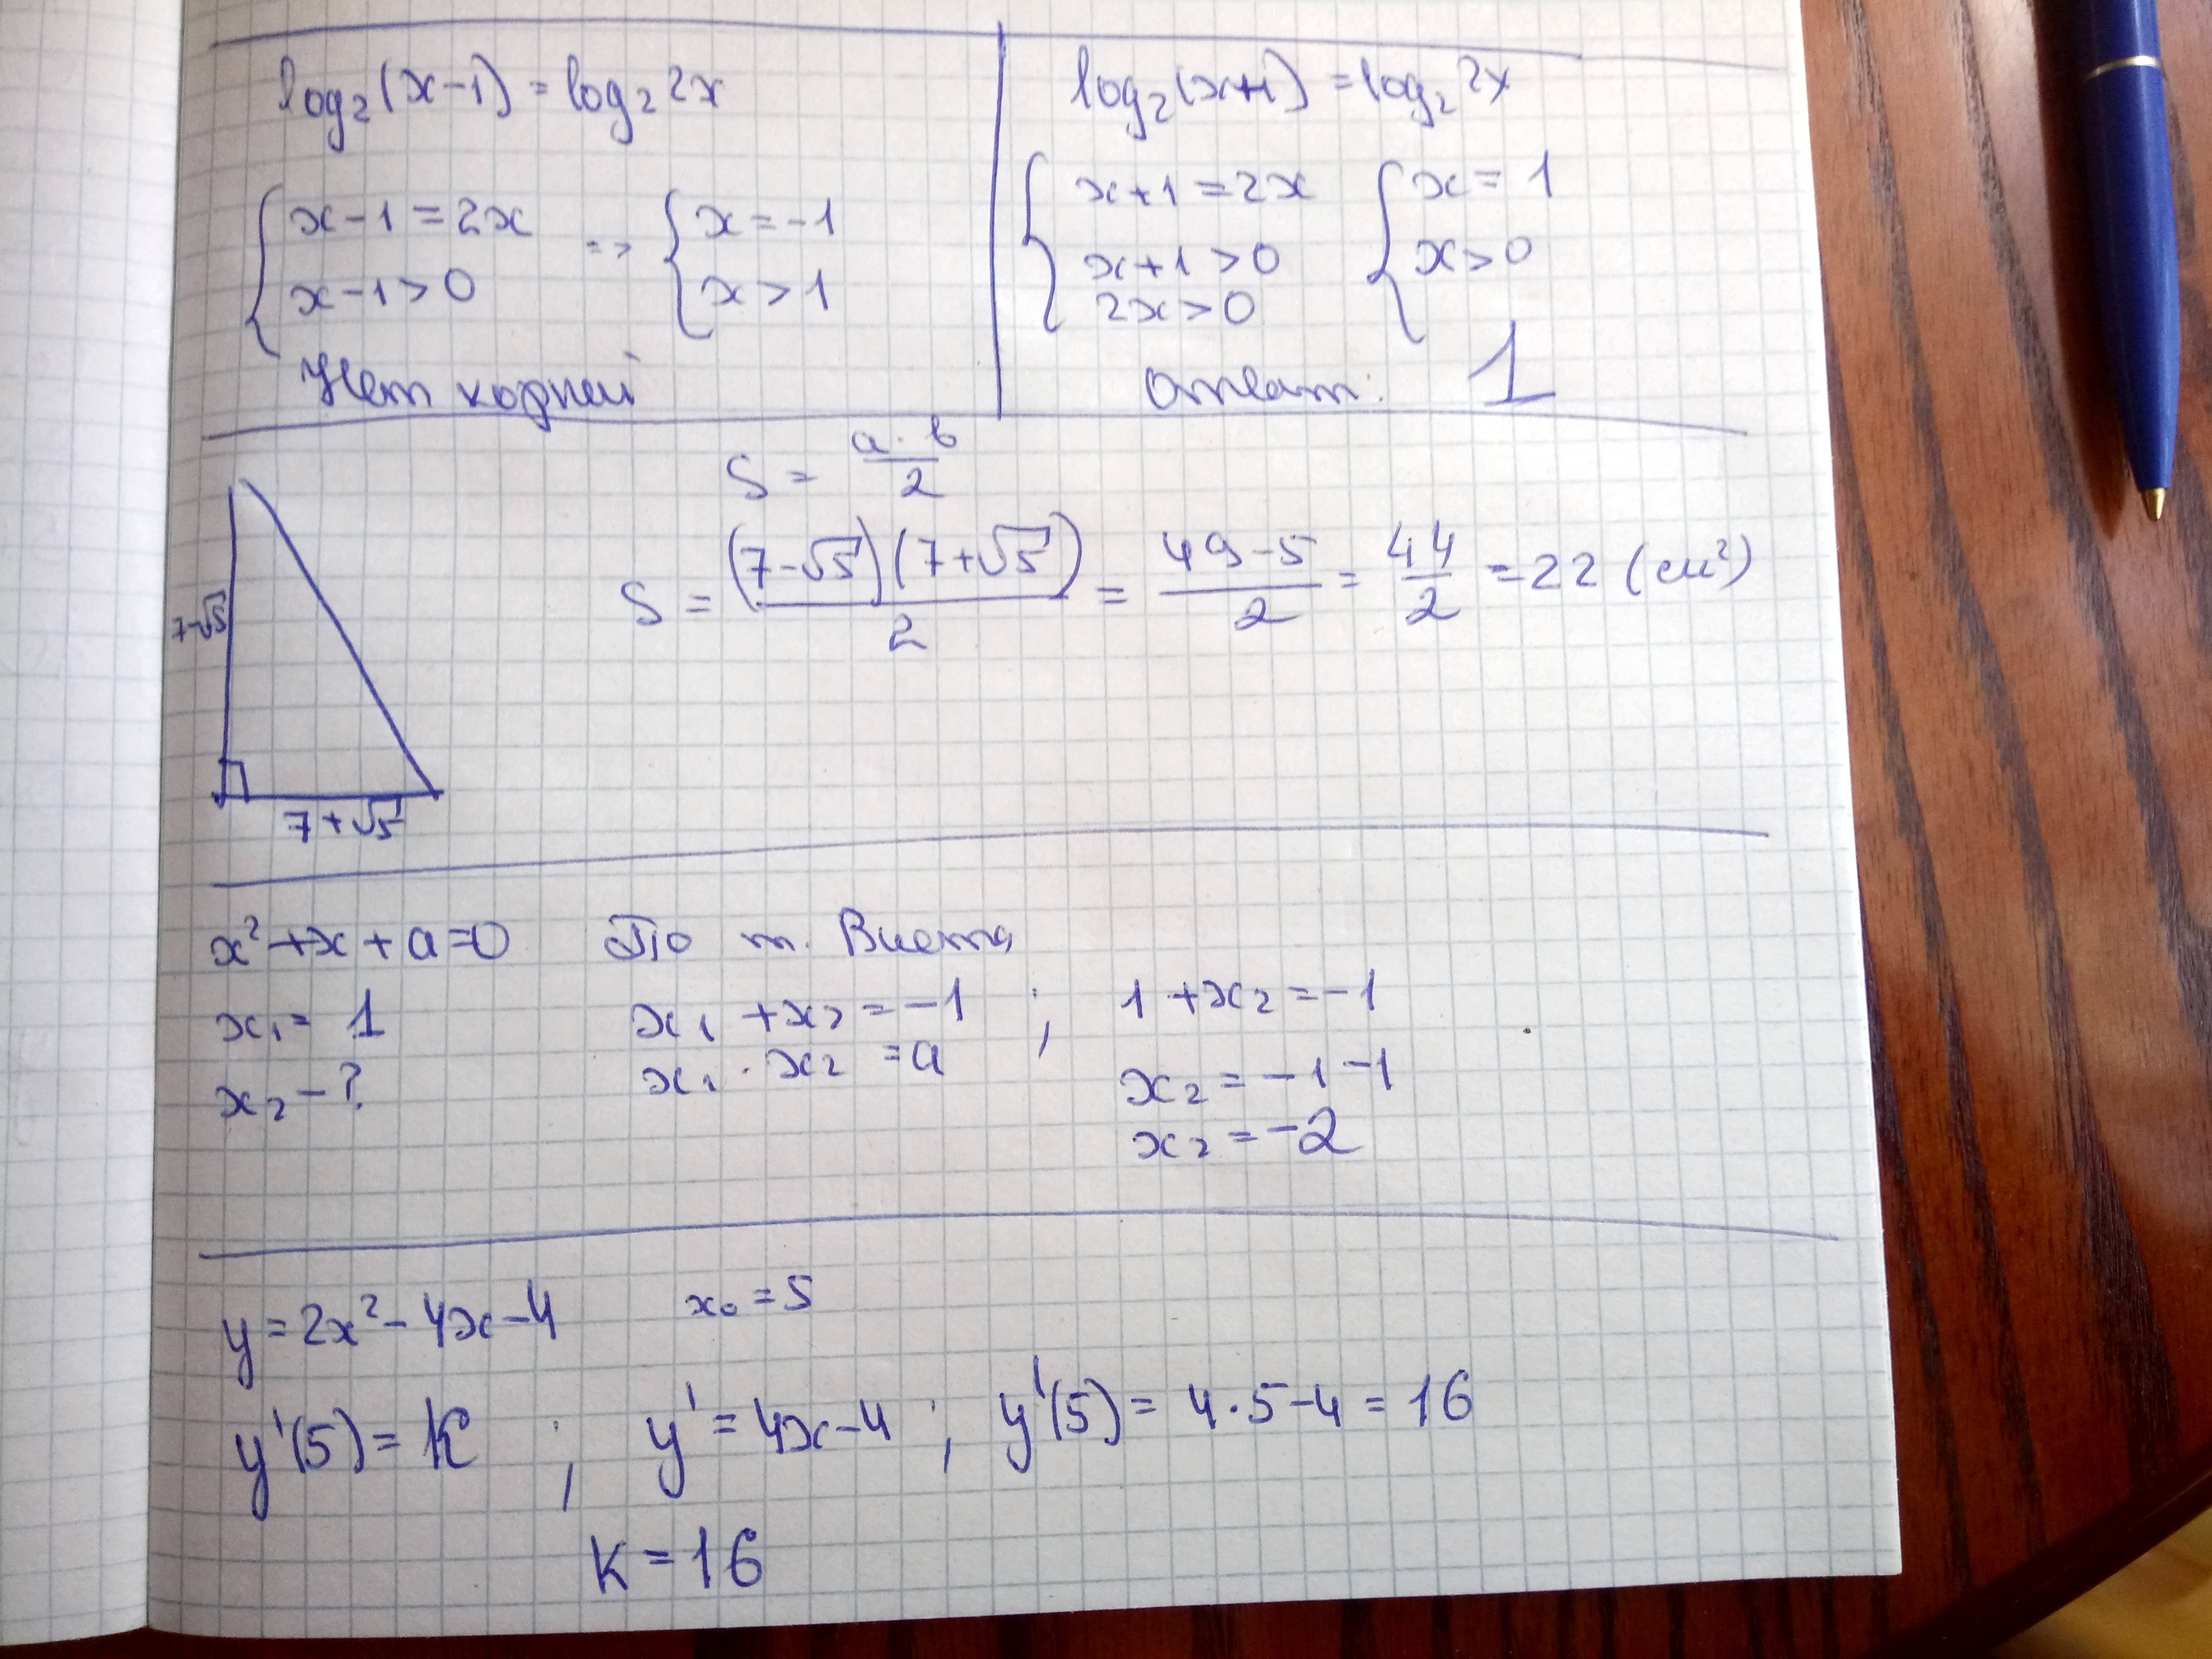 log₂(x-1) = log₂ 2x
{ x-1=2x => { x=-1
x-1>0 x>1
Нет корней
log₂(x+1) = log₂ 2x
{ x+1=2x { x=1
x+1>0 x>0
2x>0
Ответ: 1
S = (a·b)/2
S = (7-√5)(7+√5)/2 = (49-5)/2 = 44/2 = 22 (см²)
7-√5
7+√5
x²+x+a=0 По т. Виета
x₁= 1 x₁+x₂=-1 ; 1+x₂=-1
x₂-? x₁·x₂=a x₂=-1-1
x₂=-2
y=2x²-4x-4 x₀=5
y'(5)=k ; y'=4x-4 ; y'(5)=4·5-4=16
k=16